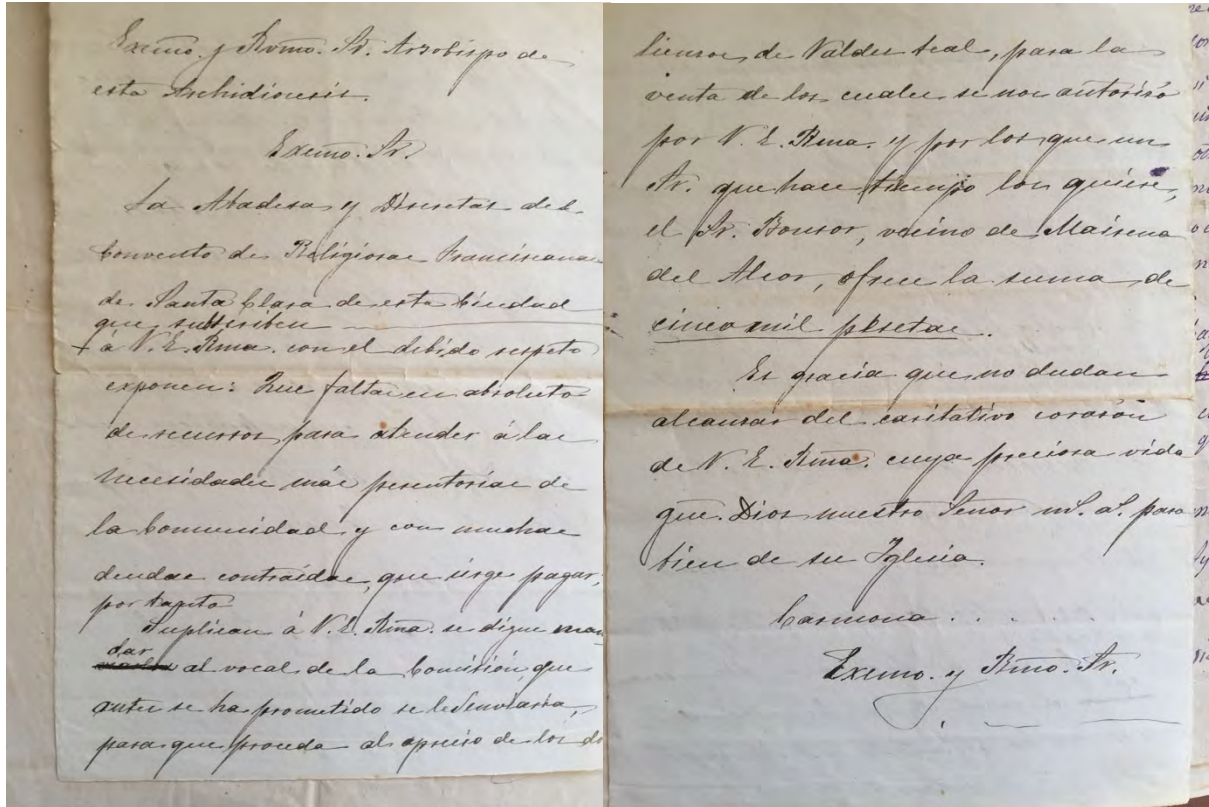 Excmo. y Rvmo. Sr. Arzobispo de
esta Archidiócesis.
Excmo. Sr.
La Abadesa y Discretas del
Convento de Religiosas Franciscanas
de Santa Clara de esta Ciudad
que subscriben
á V. E. Rma. con el debido respeto
exponen: Que faltan en absoluto
de recursos para atender á las
necesidades más perentorias de
la Comunidad y con muchas
deudas contraídas, que urge pagar;
por tanto
Suplican á V. E. Rma. se digne man
dar
al vocal de la Comisión, que
antes se ha prometido se le enviaría,
para que proceda al aprecio de los do
lienzos de Valdes Leal, para la
venta de los cuales se nos autorizó
por V. E. Rma. y por los que un
Sr. que hace tiempo los quiere,
el Sr. Bonsor, vecino de Mairena
del Alcor, ofrece la suma de
cinco mil pesetas.
Es gracia que no dudan
alcanzar del caritativo corazón
de V. E. Rma. cuya preciosa vida
gue. Dios nuestro Señor ms. as. para
bien de su Iglesia.
Carmona . . . .
Excmo. y Rmo. Sr.